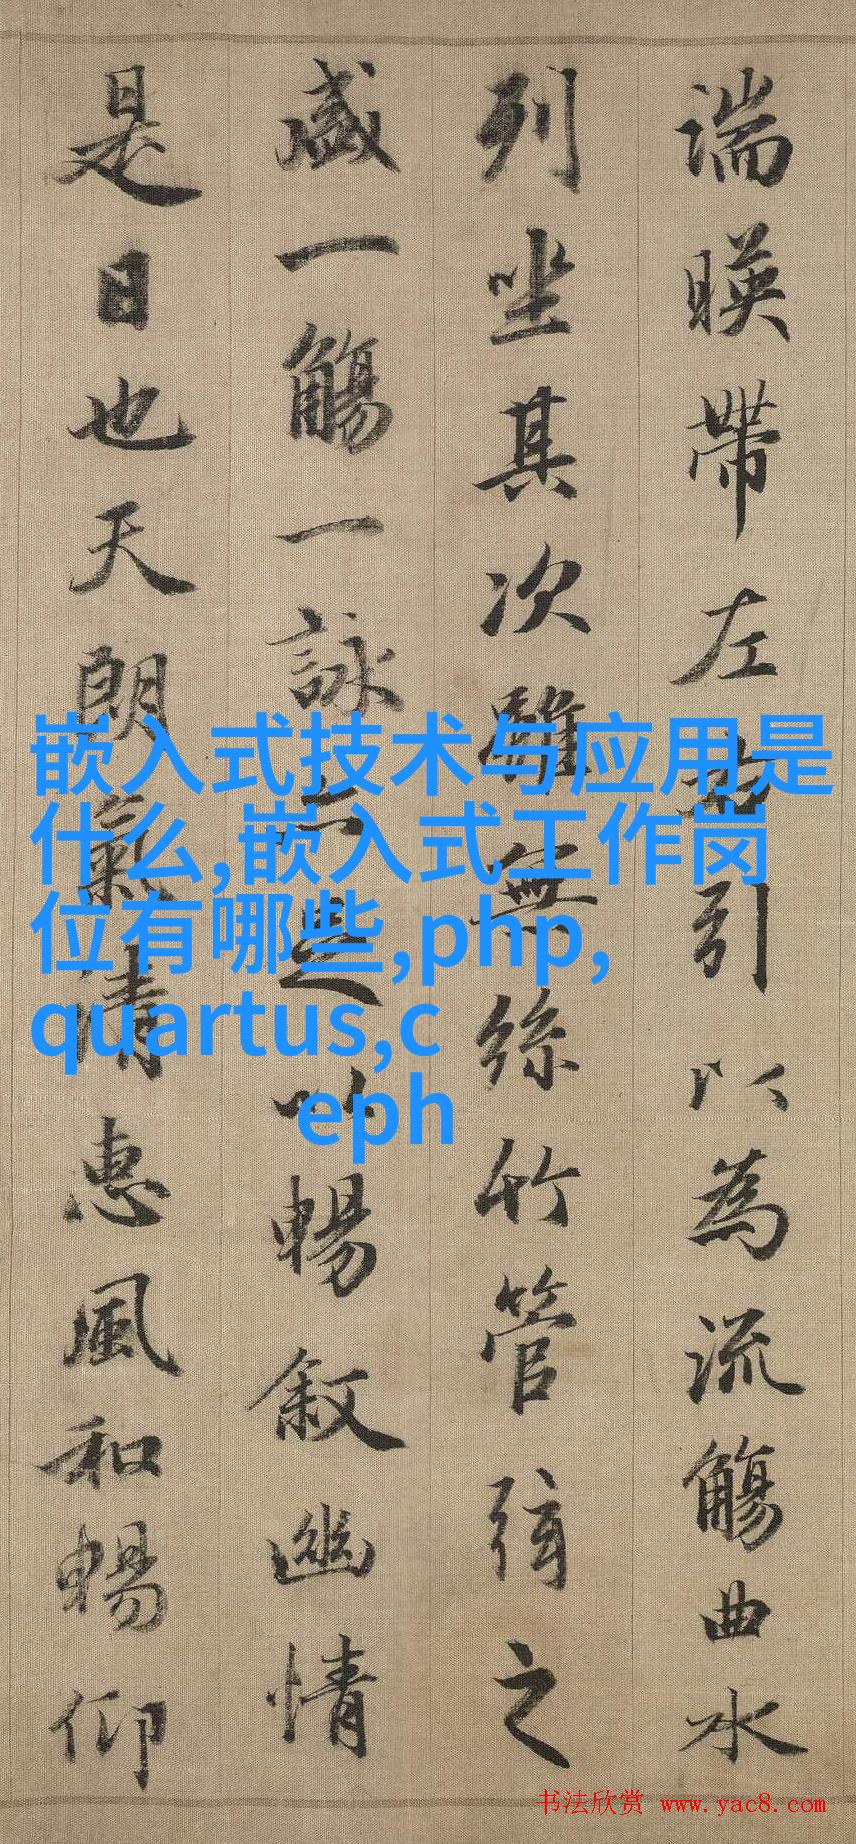 湍暎帶左右引以為流觴曲水
列坐其次雖無絲竹管弦之
盛一觴一詠亦足以暢叙幽情
是日也天朗氣清惠風和暢仰
嵌入式技术与应用是
什么,嵌入式工作岗
位有哪些,php,
quartus,c
eph
书法欣赏 www.yac8.com